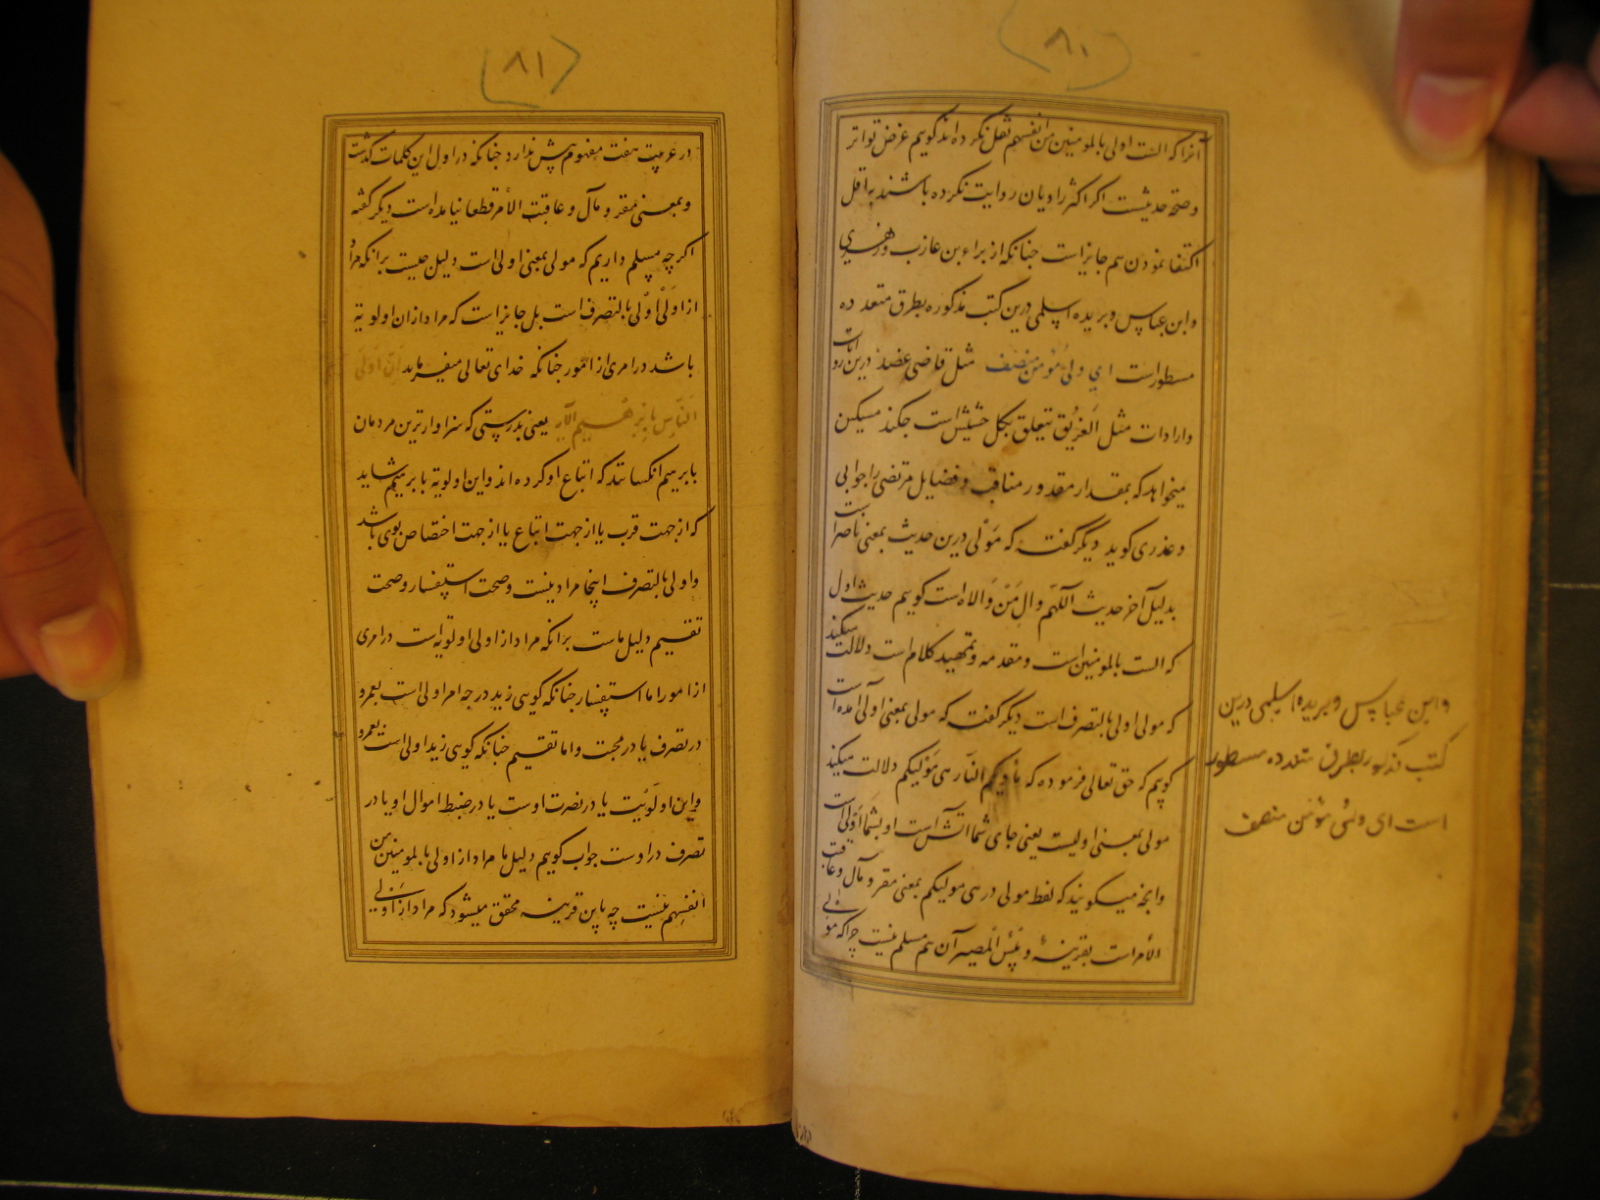 (۸۰)
آنرا که الست اولی بالمومنین من انفسهم نقل نکرده اند کویم غرض تواتر
و صحة حدیثست اکر اکثر راویان روایت نکرده باشند به اقل
اکتفا نمودن هم جایز است چنانکه از براء بن عازب و
و ابن عباس و بریده اسلمی درین کتب مذکوره بطرق متعدده
مسطور است ای ولی مؤمن منصف مثل قاضی عضد درین
و ارادات مثل الغریق یتعلق بکل حشیش است چکند مسکین
میخواهد که بمقدار مقدور مناقب و فضایل مرتضی را جوابی
و عذری کوید دیگر گفته که مولی درین حدیث بمعنی ناصر است
بدلیل آخر حدیث اللهم وال من والاه است کویم حدیث اول
که الست بالمومنین است و مقدمه و تمهید کلام است دلالت میکند
که مولی اولی بالتصرف است دیگر گفت که مولی بمعنی اولی آمده است
کویم که حق تعالی فرموده که مأویکم النار هی مولیکم دلالت میکند
مولی بمعنی اولیست یعنی جای شما آتش است او بشما اولی است
و آنچه میکویند که لفظ مولی در هی مولیکم بمعنی مقر و مآل و عاقبت
الامر است بقرینهٔ و بئس المصیر آن هم مسلم نیست چرا که مولی
و ابن عباس و بریده اسلمی درین
کتب مذکور بطرق متعدده مسطور
است ای ولی مؤمن منصف
(۸۱)
در عربیت هفت مفهوم بیش ندارد چنانکه در اول این کلمات گذشت
و بمعنی مقر و مآل و عاقبت الامر قطعا نیامده است دیگر گفته
اکرچه مسلم داریم که مولی بمعنی اولی است دلیل چیست برانکه مراد
از اولی اولی بالتصرف است بل جایز است که مراد ازان اولویة
باشد در امری از امور چنانکه خدای تعالی میفرماید ان اولی
الناس بابرهیم الآیه یعنی بدرستی که سزاوارترین مردمان
بابرهیم انکسانند که اتباع او کرده اند و این اولویة بابرهیم شاید
که از جهت قرب یا از جهت اتباع یا از جهت اختصاص بوی باشد
و اولی بالتصرف اینجا مراد نیست و صحت استفسار و صحت
تقسیم دلیل ماست برانکه مراد از اولی اولویة است در امری
از امور اما استفسار چنانکه گویی زید در چه امر اولی است بعمرو
در تصرف یا در محبت و اما تقسیم چنانکه گویی زید اولی است بعمرو
و این اولویت یا در نصرت اوست یا در ضبط اموال او یا در
تصرف در اوست جواب کویم دلیل ما مراد از اولی بالمومنین من
انفسهم نیست چه باین قرینه محقق میشود که مراد از اولی